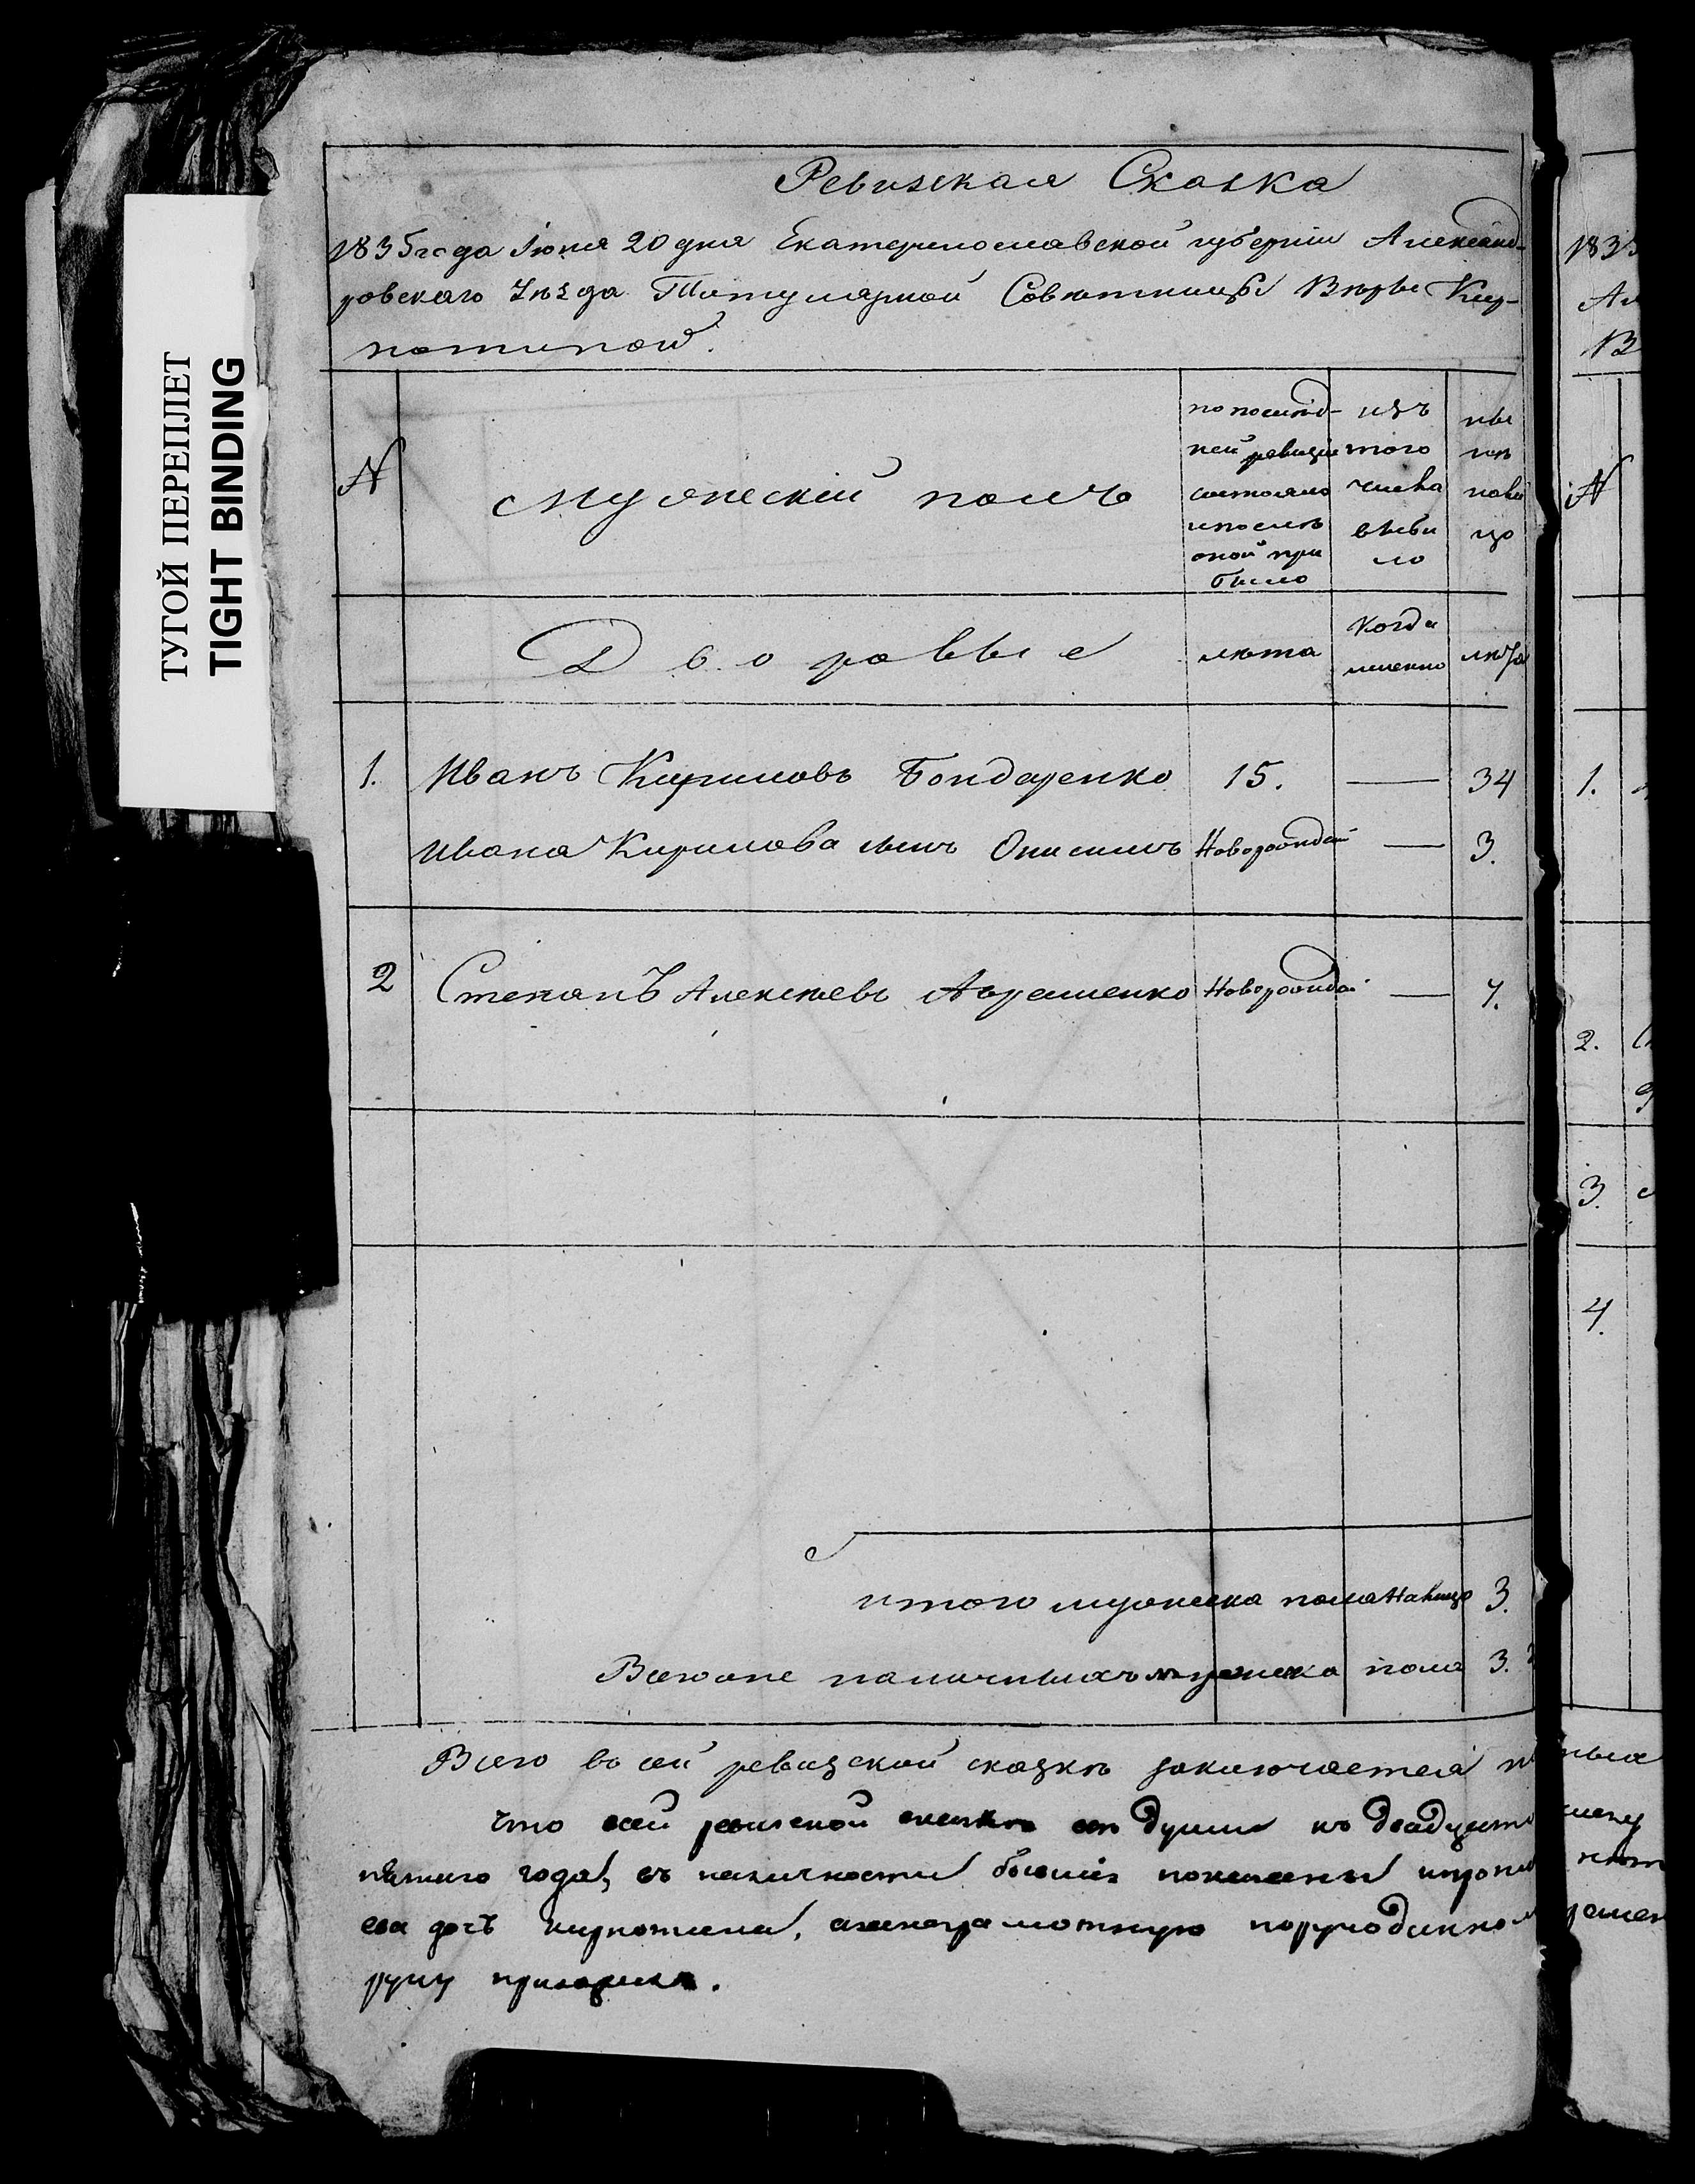 ТУГОЙ ПЕРЕПЛЕТ
TIGHT BINDING
Ревизская Сказка
1835 года Iюня 20 дня Екатеринославской губернiи Александ-
ровскаго Уѣзда Титулярной Совѣтницы Вѣры Кир-
потиной.
N
Мужескiй полъ
по послѣд-
ней ревизiи
состояло
и послѣ
оной при
было
изъ
того
числа
выбы
ло
ны
нѣ
нали
цо
Дворовые
лѣта
когда
именно
лѣта
1. Иванъ Кириловъ Бондаренко 15. — 34
Ивана Кирилова сынъ Онисимъ Новорожден — 3.
2 Степанъ Алексѣевъ Авраменко Новорожден — 7.
итого мужеска пола На лицо 3.
Всего же наличныхъ мужеска пола 3.
Всего въ сей ревизской сказкѣ заключается
Что сей ревиской скаскѣ все души къ двадцати
пятаго года, въ наличности бывшiя показаны
дочъ кирпотина,
руку приложилъ.
183
Ал
В
N
1.
2.
3.
4.